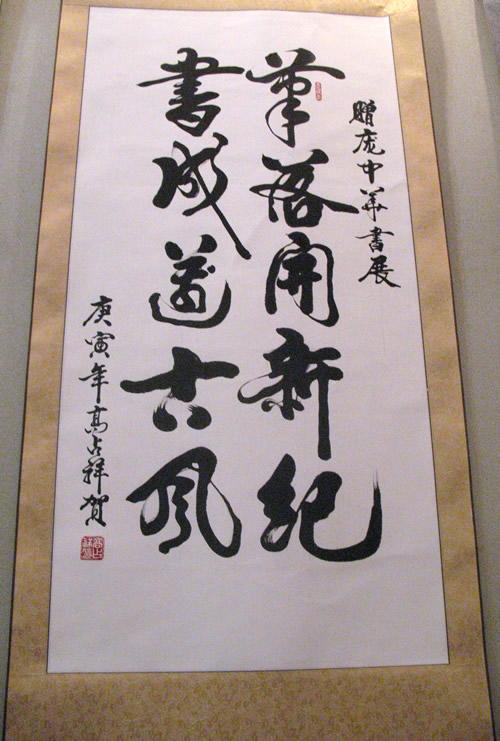 贈庞中華書展
筆落開新紀
書成遒古風
庚寅年高占祥賀